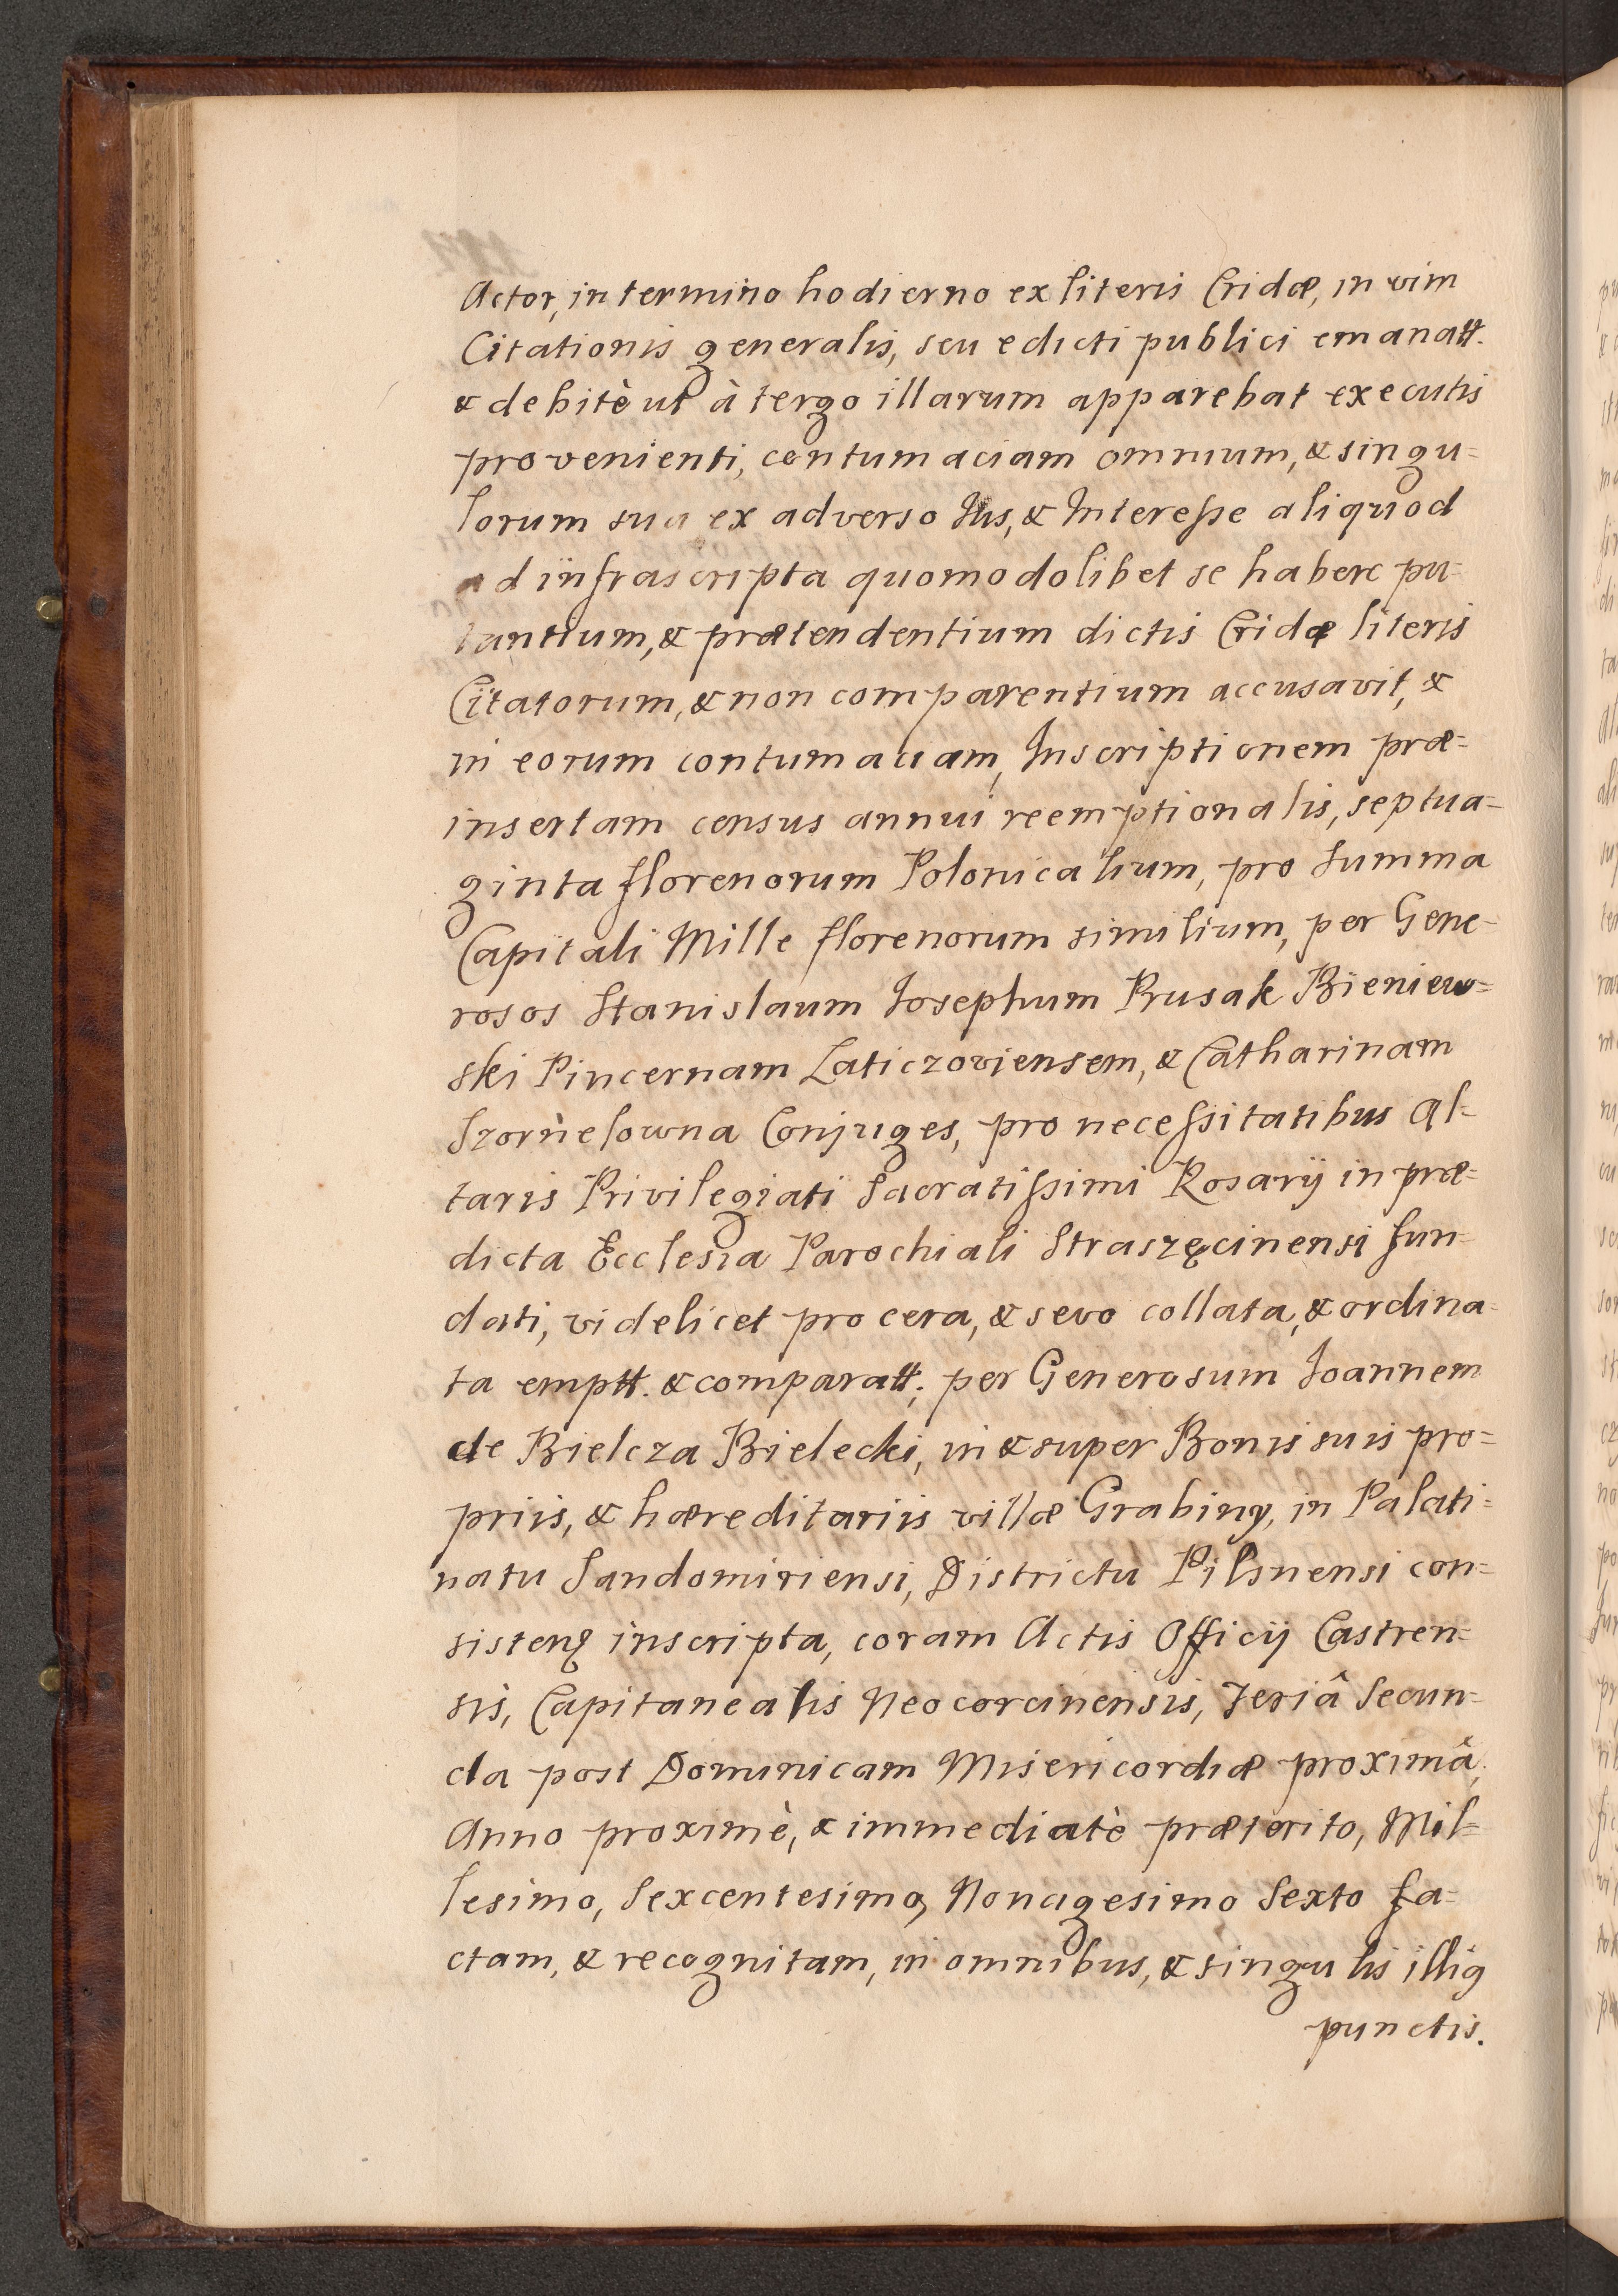 Actor, in termino hodierno ex literis Cridæ, in vim
Citationis generalis, seu edicti publici emanatt.
& debitè ut à tergo illarum apparebat executis
provenienti, contumaciam omnium, & singu=
lorum sua ex adverso Jus, & Interesse aliquod
ad infrascripta quomodolibet se habere pu=
tantium, & prætendentium dictis Cridæ literis
Citatorum, & non comparentium accusavit, &
in eorum contumaciam, Inscriptionem præ=
insertam census annui reemptionalis, septua=
ginta florenorum Polonicalium, pro Summa
Capitali Mille florenorum similium, per Gene=
rosos Stanislaum Josephum Rusak Bieniew=
ski Pincernam Laticzoviensem, & Catharinam
Szornelowna Conjuges, pro necessitatibus Al=
taris Privilegiati Sacratissimi Rosarij in præ=
dicta Ecclesia Parochiali Straszęcinensi fun=
dati, videlicet pro cera, & sevo collata, & ordina=
ta emptt. & comparatt; per Generosum Joannem
de Bielcza Bielecki, in & super Bonis suis pro=
priis, & hæreditariis villæ Grabiny, in Palati=
natu Sandomiriensi, Districtu Pilsnensi con=
sisten inscripta, coram Actis Officij Castren=
sis, Capitanealis Neocorcinensis, Feriâ Secun=
da post Dominicam Misericordiæ proximâ,
Anno proximè, & immediatè præterito, Mil=
lesimo, Sexcentesimo, Nonagesimo Sexto fa=
ctam, & recognitam, in omnibus, & singulis illig
punctis.